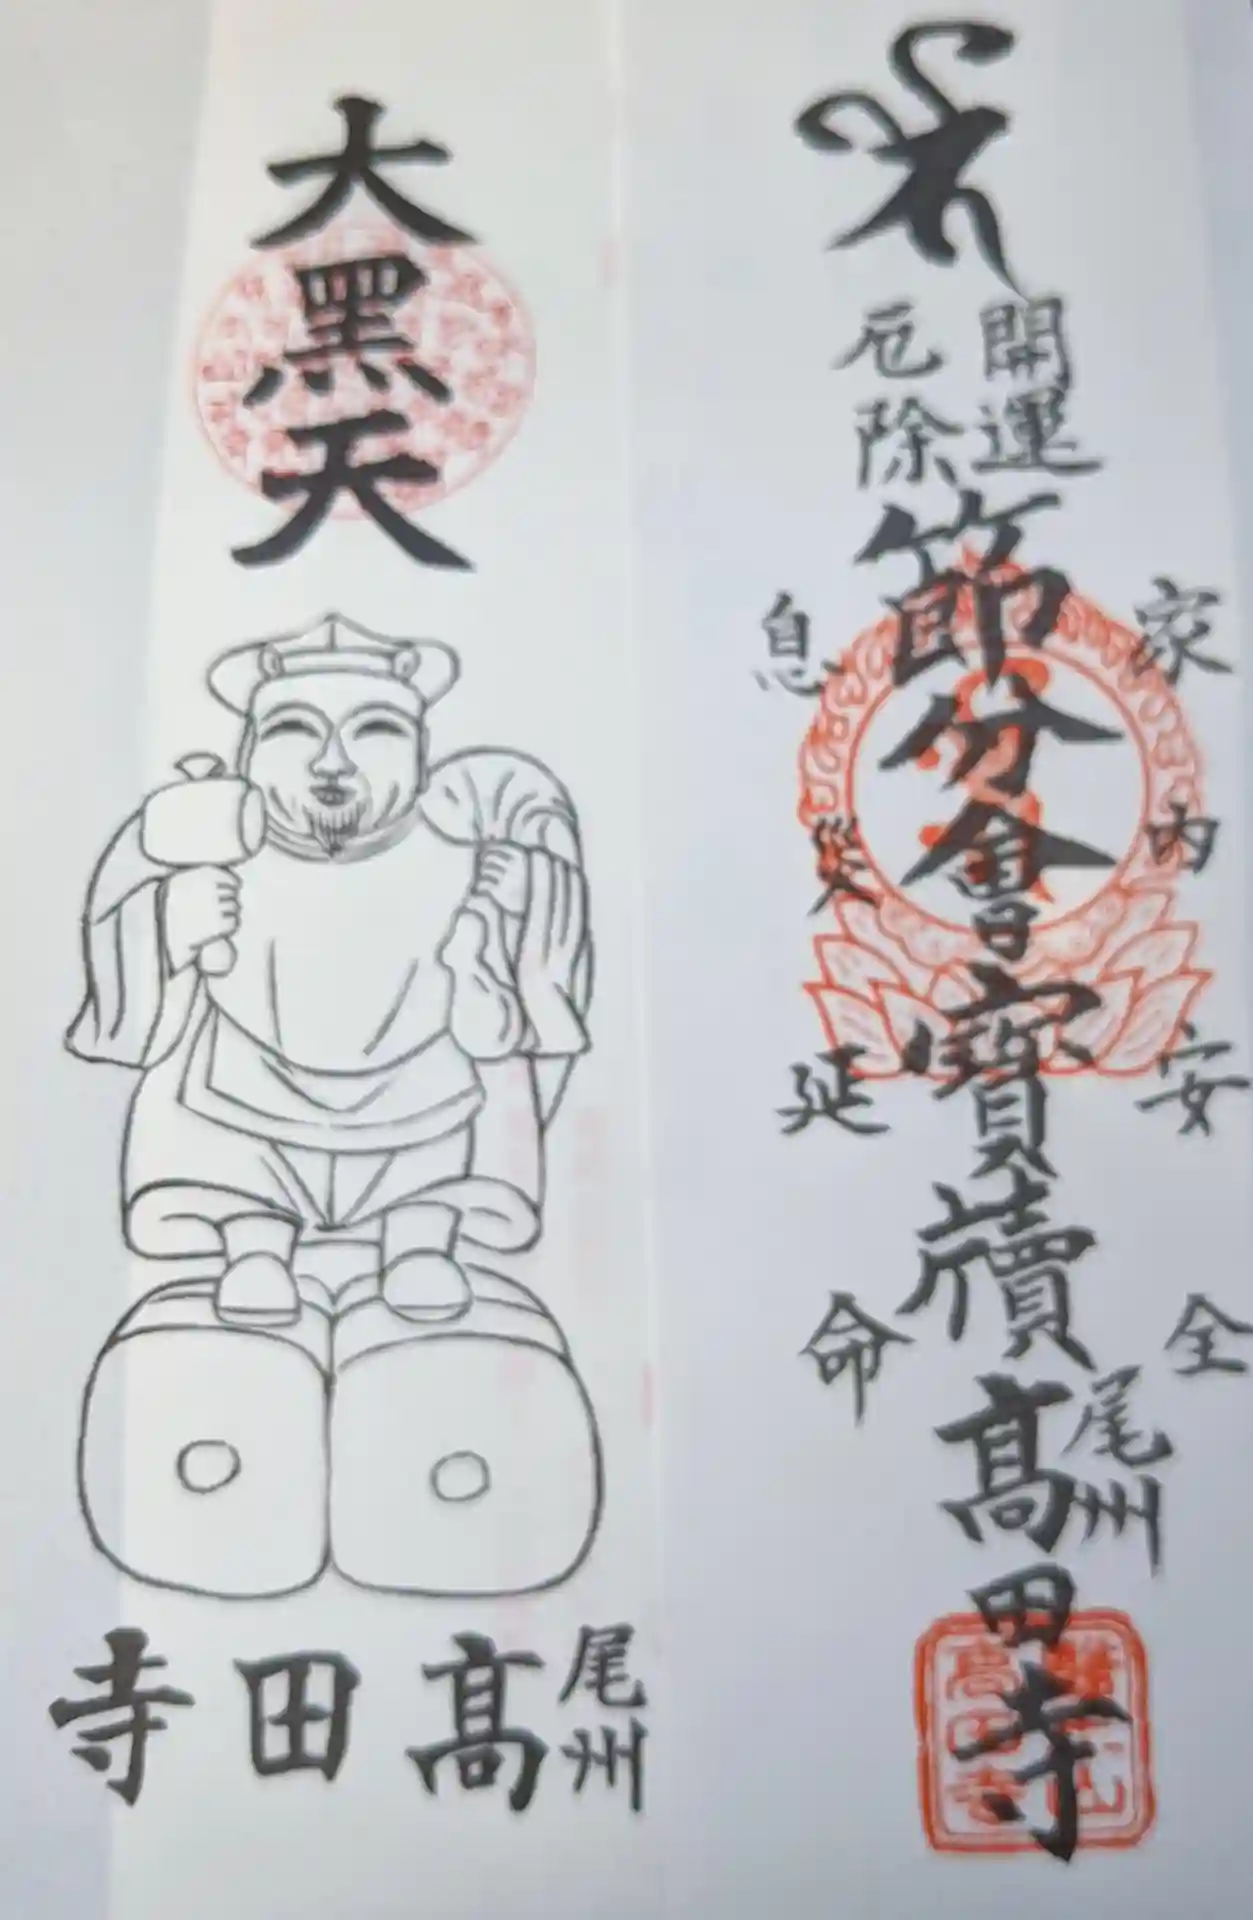 開運
厄除
節分會寶牘
家内安全
息災延命
尾州
髙田寺
大黑天
尾州
髙田寺